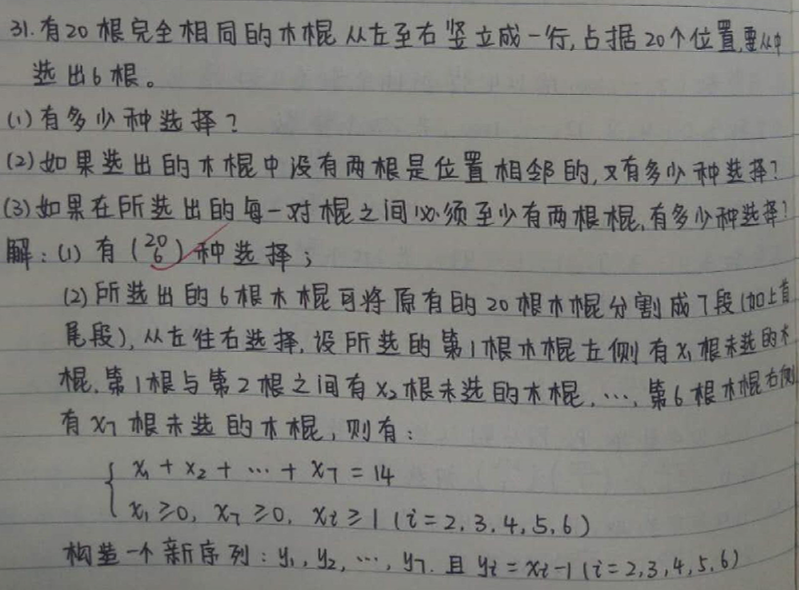 31. 有20根完全相同的木棍从左至右竖立成一行,占据20个位置,要从中
选出6根。
(1) 有多少种选择?
(2) 如果选出的木棍中没有两根是位置相邻的,又有多少种选择?
(3) 如果在所选出的每一对棍之间必须至少有两根棍,有多少种选择?
解: (1) 有 (20 6) 种选择;
(2) 所选出的6根木棍可将原有的20根木棍分割成7段(加上首
尾段), 从左往右选择, 设所选的第1根木棍左侧有x₁根未选的木
棍, 第1根与第2根之间有x₂根未选的木棍, …, 第6根木棍右侧
有x₇根未选的木棍, 则有:
x₁ + x₂ + … + x₇ = 14
x₁ ≥ 0, x₇ ≥ 0, xᵢ ≥ 1 (i = 2, 3, 4, 5, 6)
构造一个新序列: y₁, y₂, …, y₇. 且 yᵢ = xᵢ - 1 (i = 2, 3, 4, 5, 6)